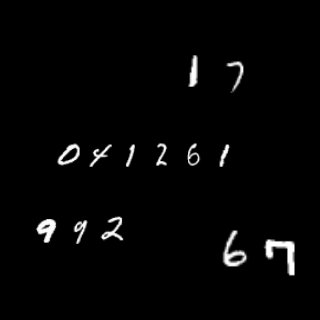 1 7
0 4 1 2 6 1
9 9 2
6 7